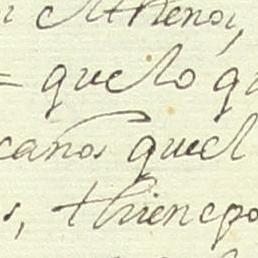 Athenas,
= quelo qu
canos quel
s, thienepo